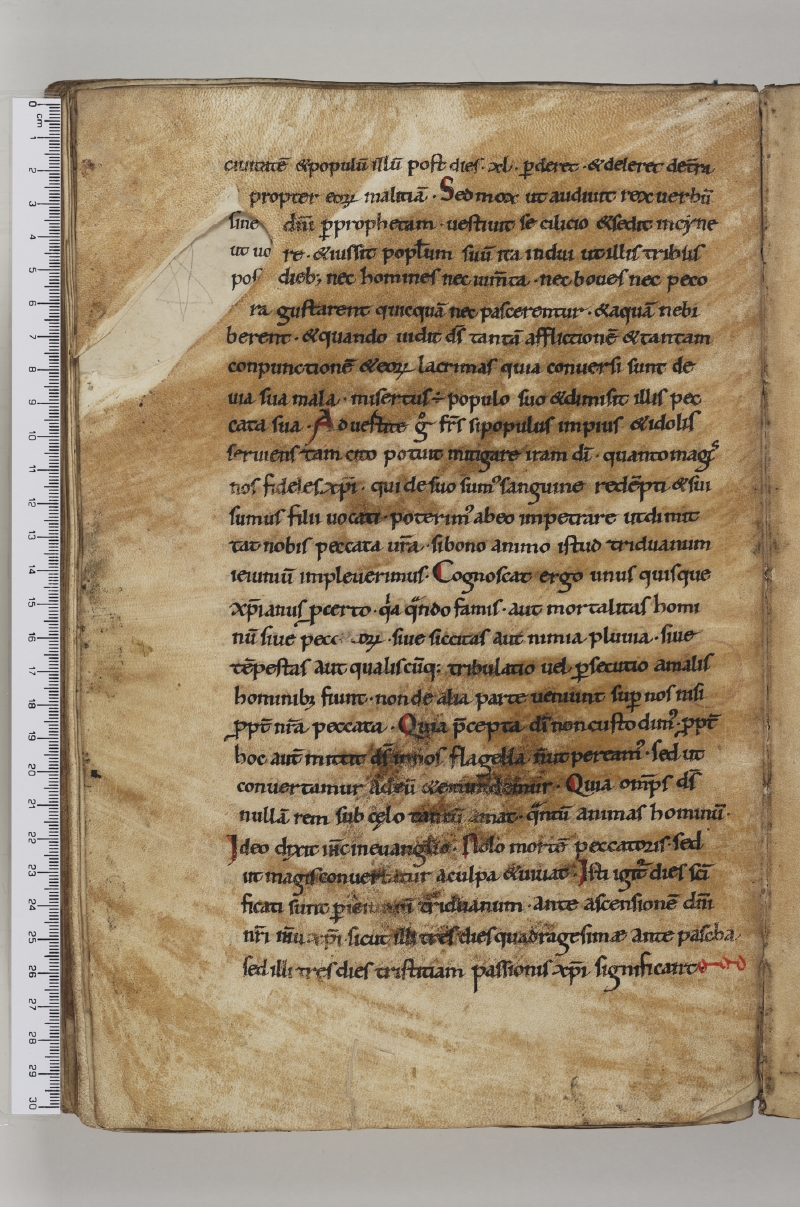 ciuitatē &populū illū post dies · xl · ꝑderet · &deleret det̄ra
propter eoꝝ malitiā · Sed mox ut audiuit rex uerbū
sine dñi ꝑprophetam · uestiuit se cilicio &sedit incyne
ut uo re · &iussit popłum suū ita indui utillis tribus
pos dieb; nec homines nec ium̄ta · nec boues nec peco
ra gustarent quicquā nec pascerentur · &aquā nebi
berent · &quando uidit d̄s tantā afflictionē &tantam
conpunctionē &eoꝝ lacrimas quia conuersi sunt de
uia sua mala · misertus ÷ populo suo &dimisit illis pec
cata sua · Aduertite gͦ fr̄s sipopulus impius &idolis
seruiens tam cito potuit mitigare iram dī · quantomagꝰ
nos fideles xp̄i · qui de suo sumꝰ sanguine redēpti &sui
sumus filii uocati · poterimꝰ abeo impetrare utdimit
tat nobis peccata ur̄a · sibono animo istud triduanum
ieiuniū impleuerimus · Cognoscat ergo unus quisque
xp̄ianus ꝑcerto · qa qn̄do famis · aut mortalitas homi
nū siue pecc oꝝ · siue siccitas aut nimia pluuia · siue
tēpestas aut qualiscūq; tribulatio uel ꝑsecutio amalis
hominib; fiunt · non de alia parte ueniunt suꝑ nos nisi
ꝓpt̄ nr̄a peccata · Quia p̄cepta dī non custodimꝰ · ꝓpt̄
hoc aut̄ mittit d̄s innos flagella n̄ ut pereamꝰ · sed ut
conuertamur adeū &emundemur · Quia omp̄s d̄s
nullā rem sub cęlo tantū amat · qn̄tū animas hominū ·
Ideo dixit iħc ineuangelio · Nolo mortē peccatoris · sed
ut magis conuertatur aculpa &uiuat · Isti igit̄ dies sc̄i
ficati sunt ꝑ triduanum · ante ascensionē dñi
nr̄i iħu xp̄i · sicut illi tres dies quadragesimæ ante pascha
sed illi tres dies tristitiam passionis xp̄i significant